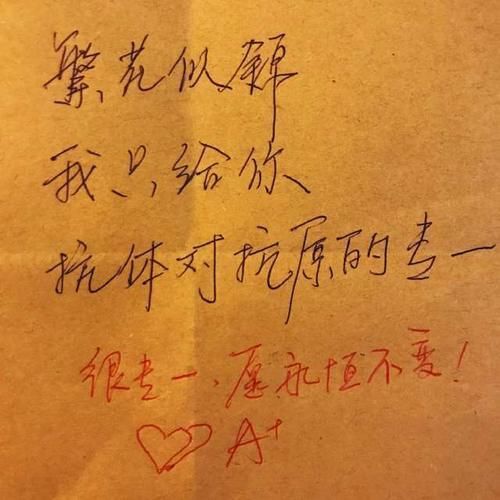 繁花似锦
我只给你
抗体对抗原的专一
很专一、愿永恒不变!
A+